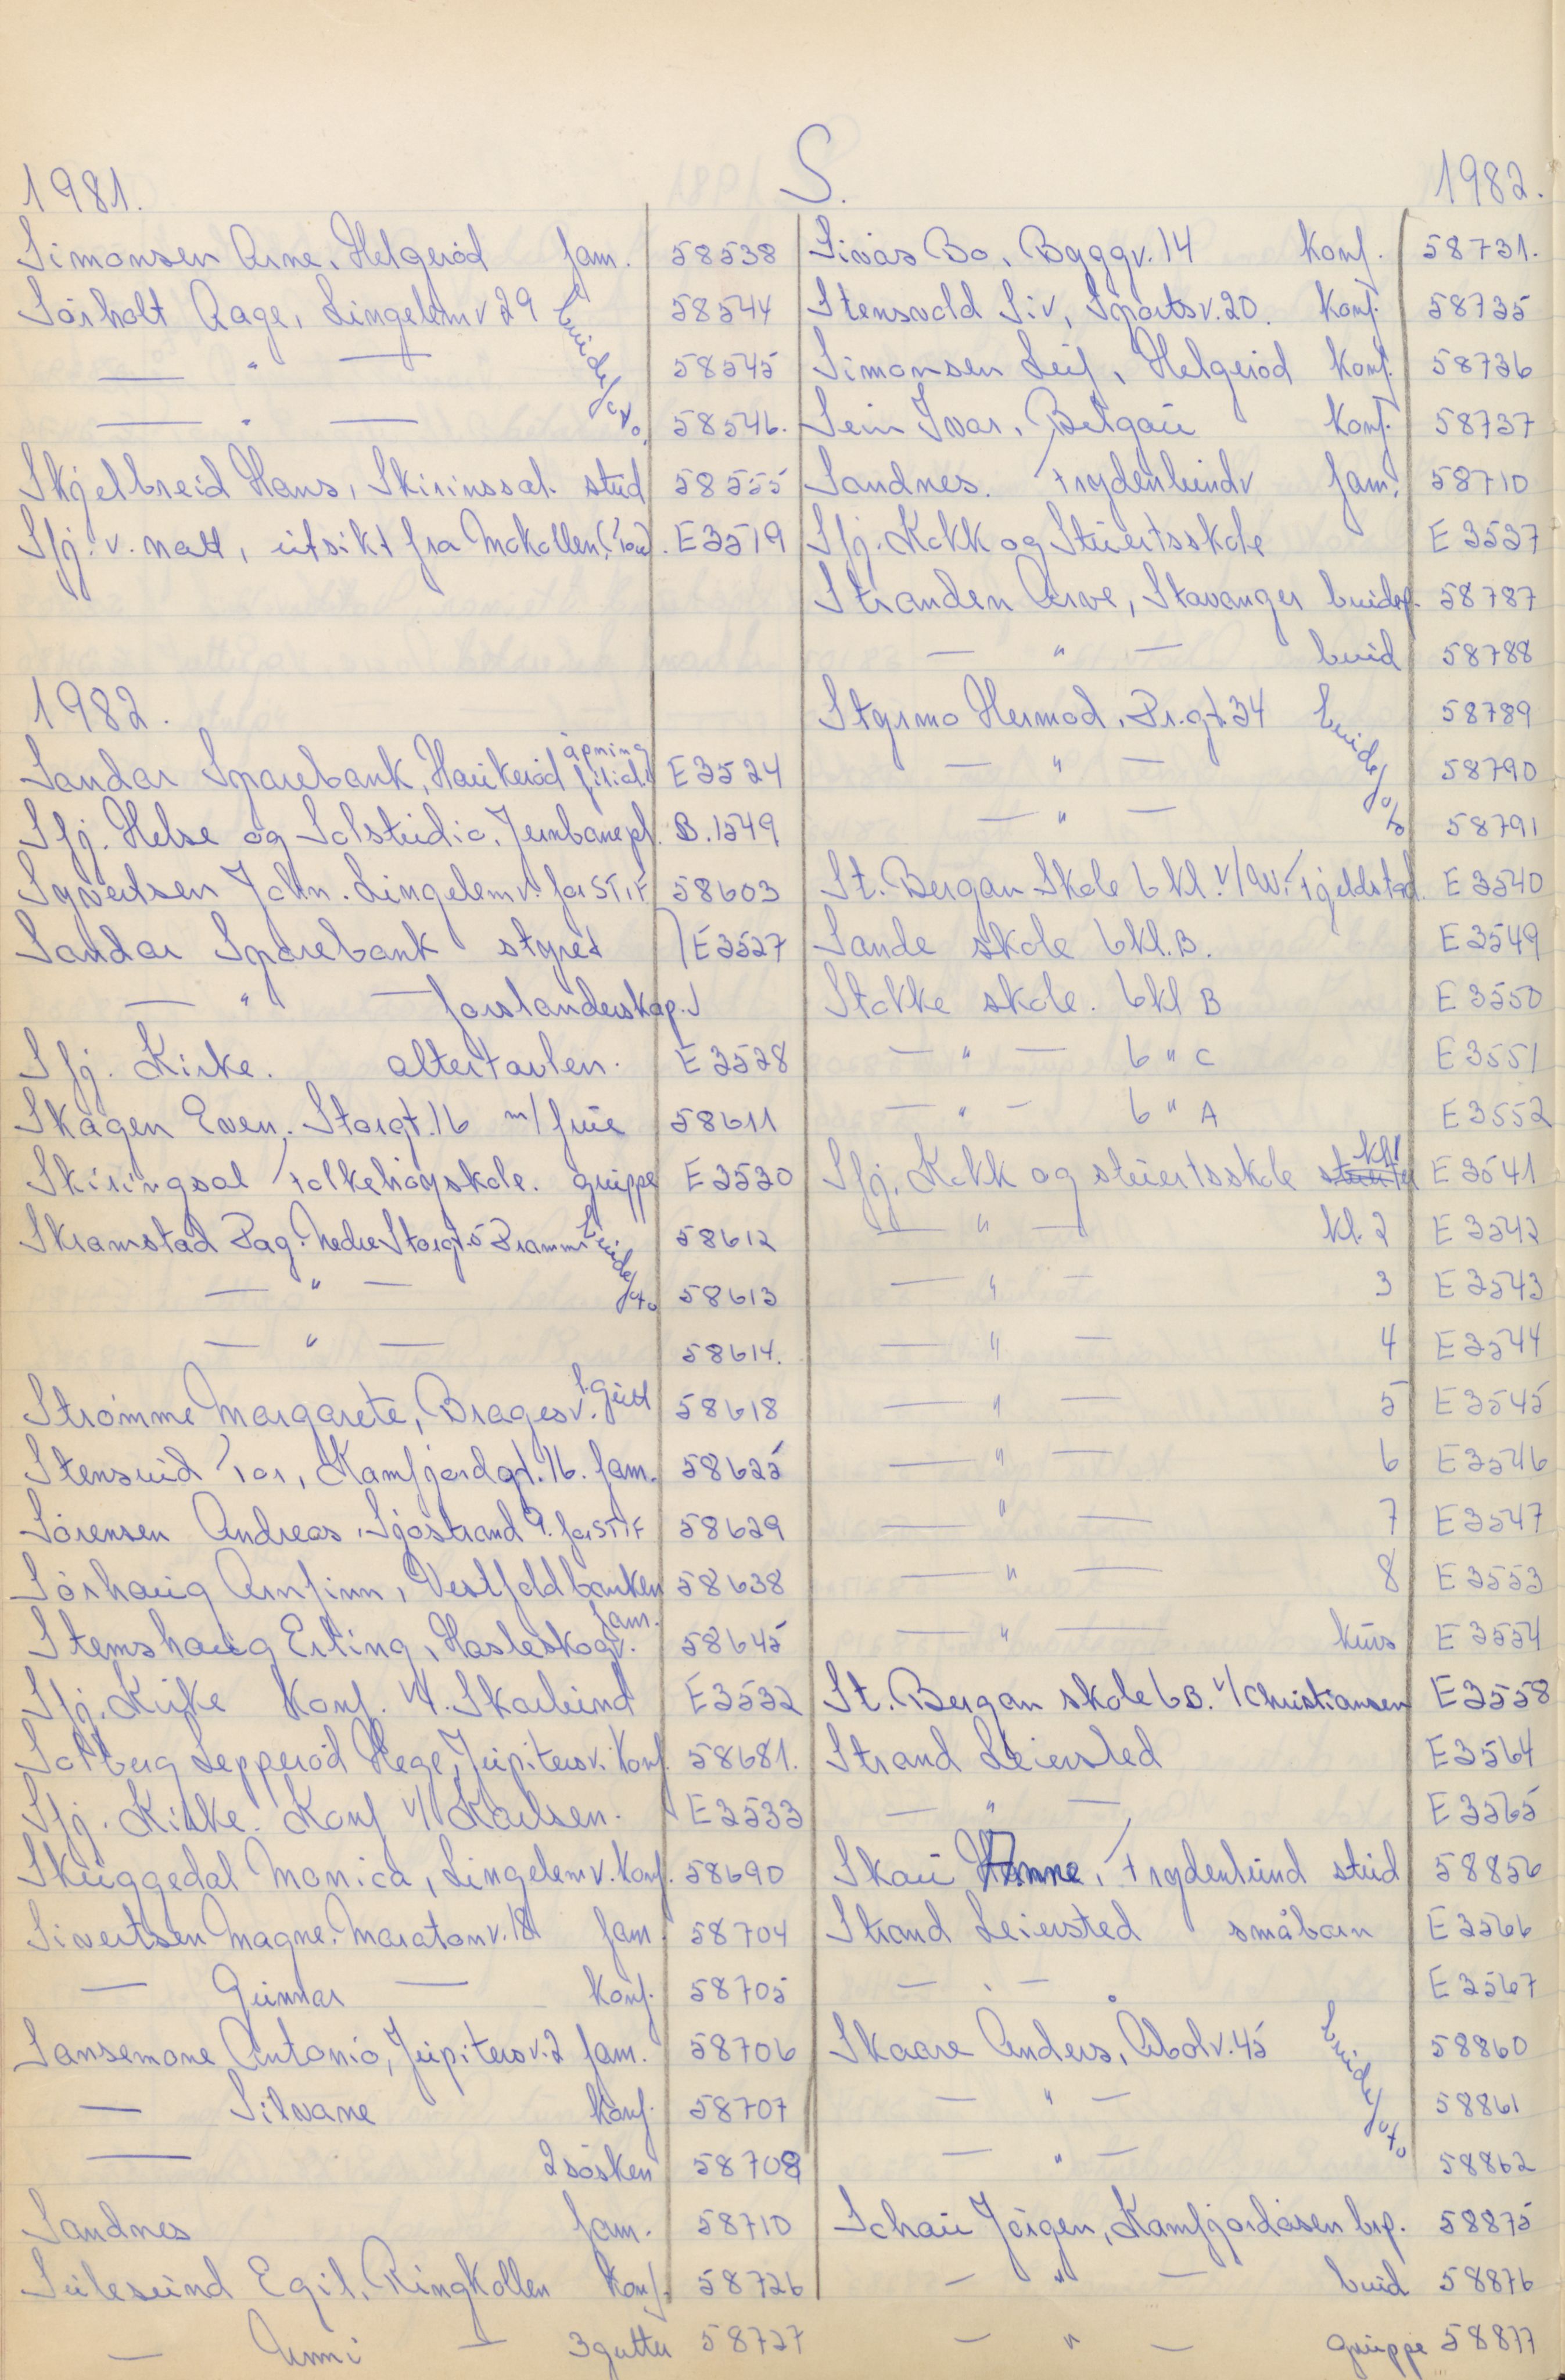 S.
1981.
Simonsen Arne, Helgeröd fam. 58538
Sörholt Aage, Lingelemv 29 brudefoto 58544
— " — 58545
— " — 58546.
Skjelbreid Hans, Skirinssal. stud 58555
Sfj. v. natt, utsikt fra Mokollen (Tou). E3519
1982.
Sandar Sparebank, Haukeröd åpning filial E3524
Sfj. Helse og Solstudio, Jernbanepl. B.1549
Syvertsen John. Lingelemv. for STIF 58603
Sandar Sparebank styret E3527
— " — forstanderskap.
Sfj. Kirke. altertavlen. E3528
Skagen Even, Storgt.16 m/frue 58611
Skiringsal Folkehögskole. gruppe E3530
Skramstad Dag. Nedre Storgt.5 Drammen brudefoto 58612
— " — 58613
— " — 58614.
Strömme Margarete, Bragesv. f. gutt 58618
Stensrud Tor, Kamfjordgt.16. fam. 58625
Sörensen Andreas, Sjöstrand 9. for STIF 58629
Sörhaug Arnfinn, Vestfoldbanken 58638
Stemshaug Erling, Hasleskogv. fam. 58645
Sfj. Kirke Konf. v/. Skarlund E3532
Solberg Lepperöd Hege, Jupitersv. Konf. 58681.
Sfj. Kirke. Konf v/ Karlsen. E3533
Skuggedal Monica, Lingelemv. Konf. 58690
Sivertsen Magne. Maratonv.18 fam. 58704
— Gunnar — Konf. 58705
Sansemone Antonio, Jupitersv.2 fam. 58706
— Silvane Konf. 58707
— 2 sösken 58708
Sandnes fam. 58710
Sulesund Egil, Ringkollen Konf. 58726
— Anni — 3 gutter 58727
1982.
Sivås Bo, Byggv.14 Konf. 58731.
Stensvold Siv, Sportsv.20. Konf. 58735
Simonsen Leif, Helgeröd Konf. 58736
Sein Ivar, Bergan Konf. 58737
Sandnes. Frydenlundv fam. 58710
Sfj. Kokk og Stuertsskole E3537
Stranden Arve, Stavanger brudep. 58787
— " — brud 58788
Styrmo Hermod, Dr.gt.34 brudefoto 58789
— " — 58790
— " — 58791
St. Bergan Skole 6 kl. v/ Fjeldstad. E3540
Sande skole 6kl.B. E3549
Stokke skole. 6kl B E3550
— " — 6 " C E3551
— " — 6 " A E3552
Sfj. Kokk og stuertsskole kl 1 E3541
— " — kl. 2 E3542
— " — 3 E3543
— " — 4 E3544
— " — 5 E3545
— " — 6 E3546
— " — 7 E3547
— " — 8 E3553
— " — kurs E3554
St. Bergan skole 6B. v/ Christiansen E3558
Strand Leiersted E3564
— " — E3565
Skau Hanne, Frydenlund stud 58856
Strand Leiersted småbarn E3566
— " — E3567
Skaare Anders, Abolv.45 brudefoto 58860
— " — 58861
— " — 58862
Schau Jörgen, Kamfjordåsen brp. 58875
— " — brud 58876
— " — gruppe 58877